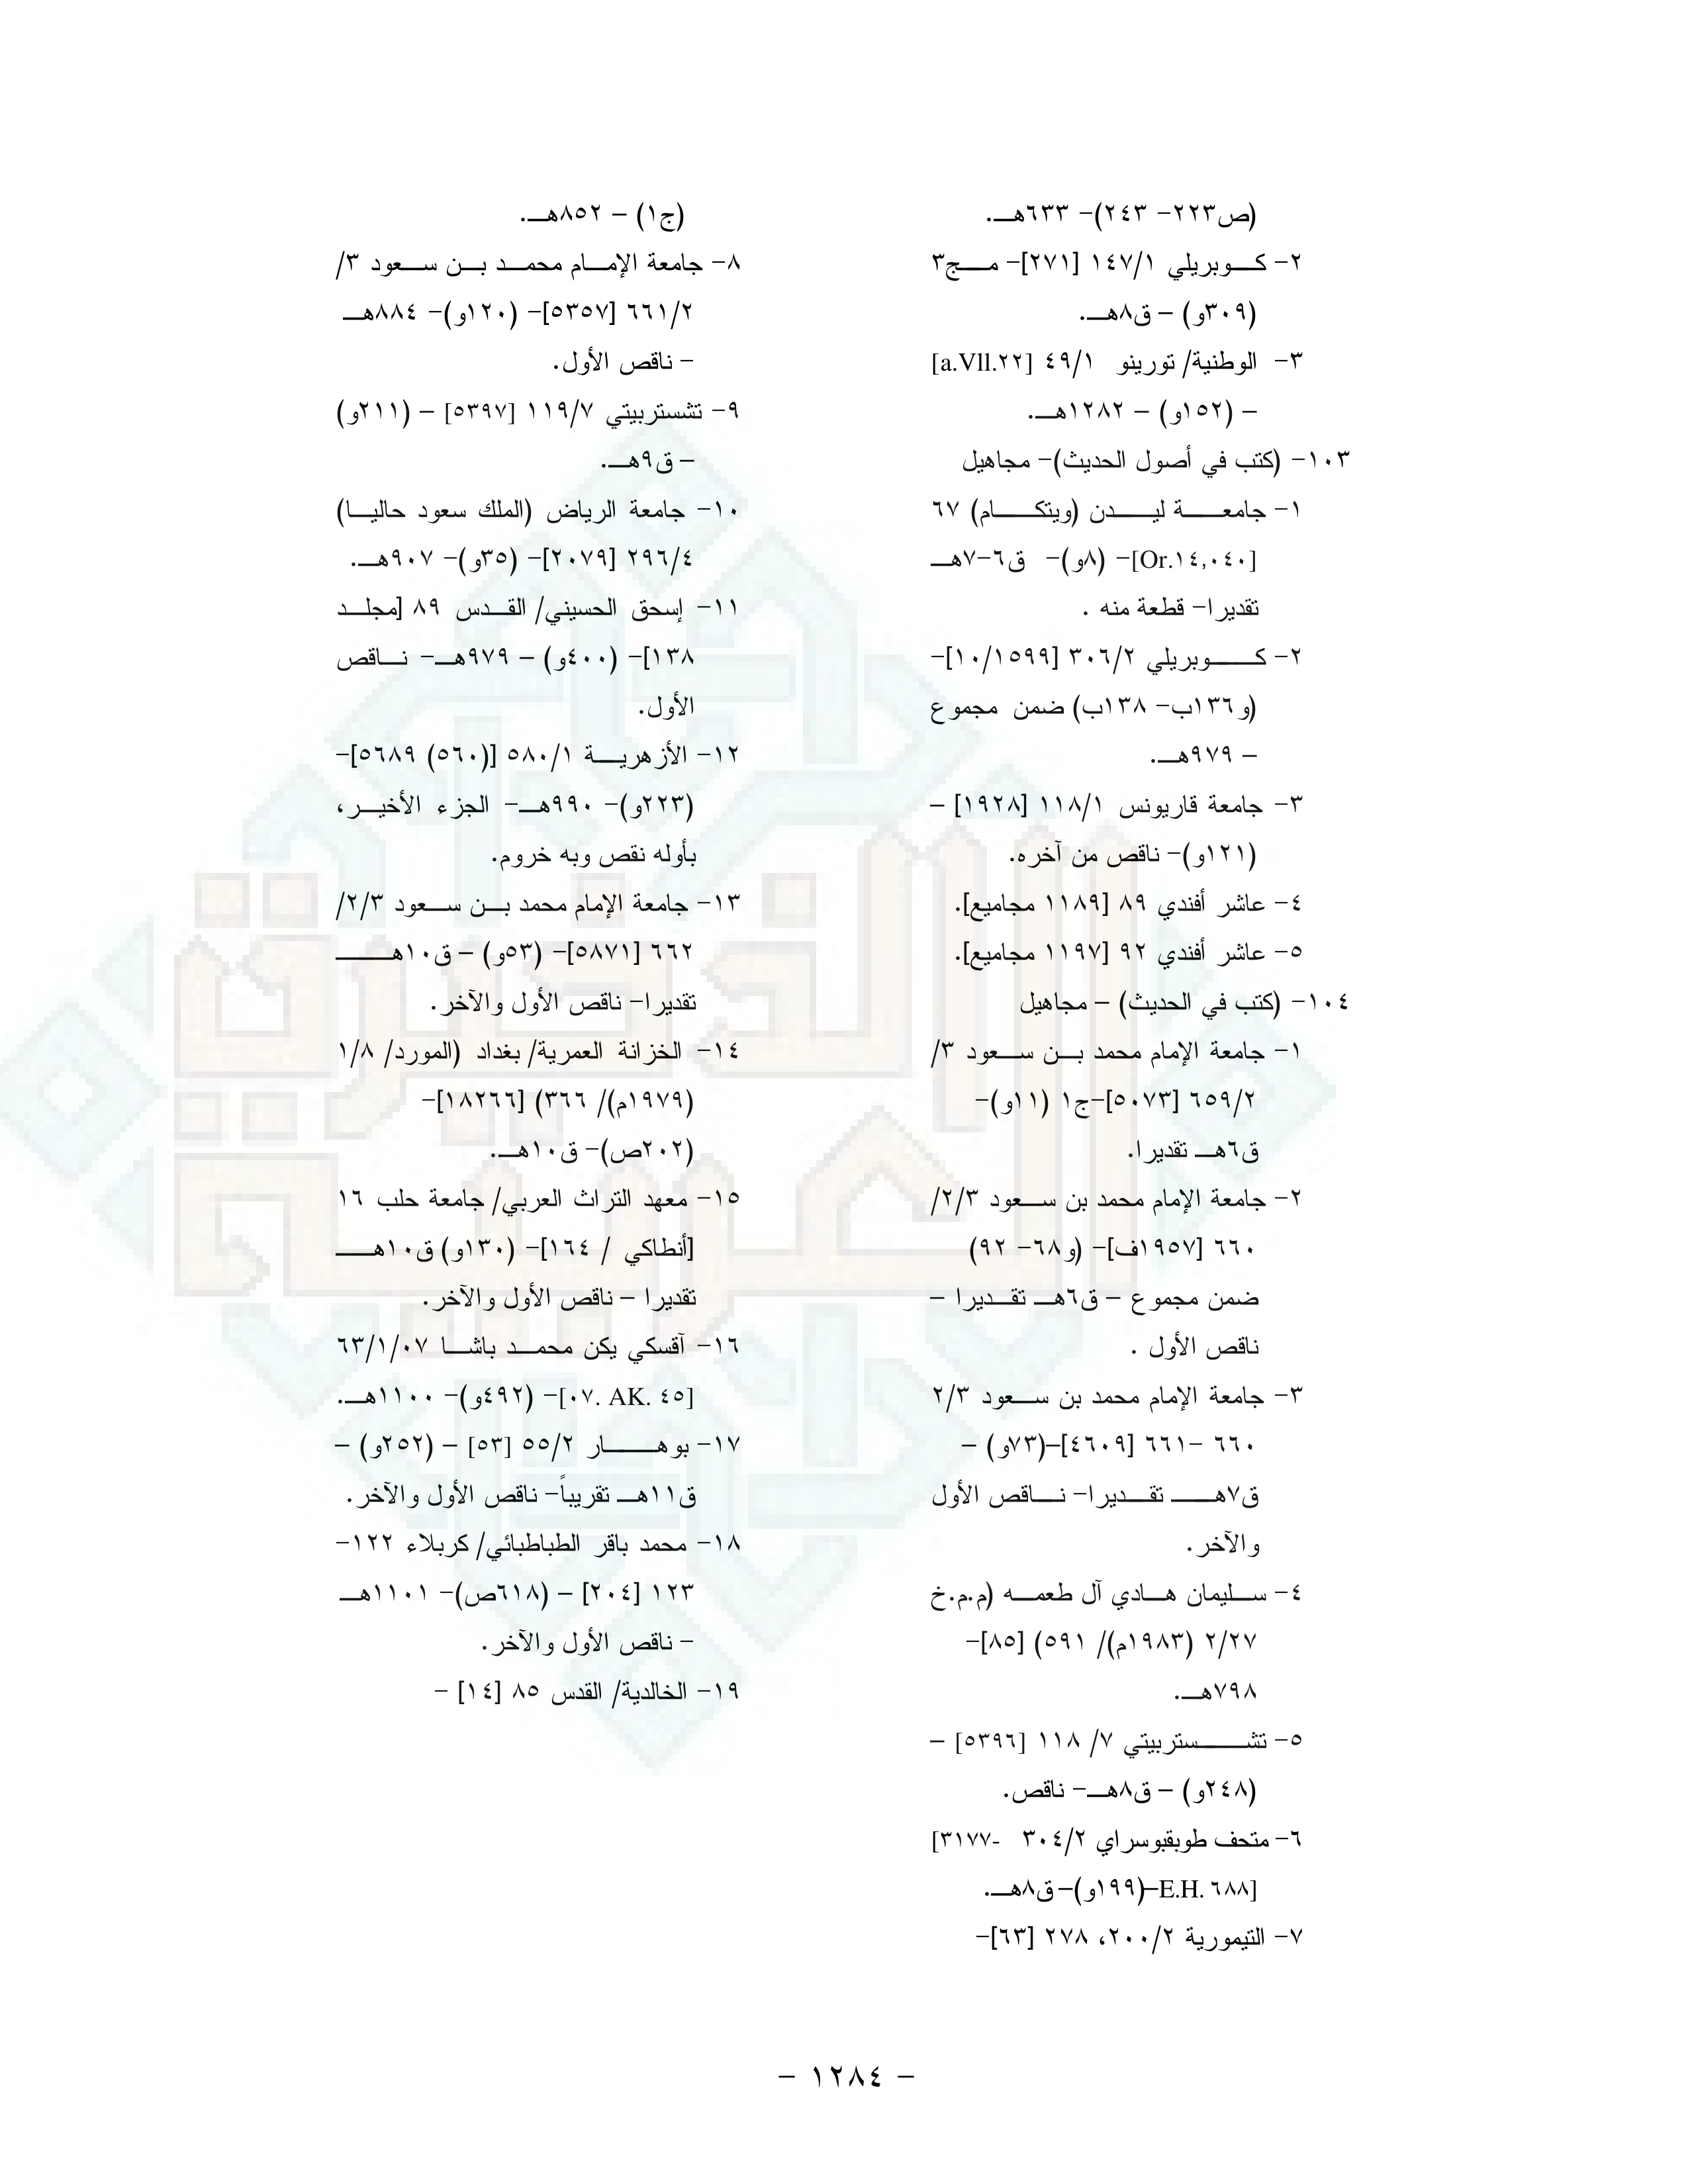 (ص٢٢٣- ٢٤٣)- ٦٣٣هـ.
٢- كوبريلي ١٤٧/١ [٢٧١]- مج٣
(٣٠٩و) – ق٨هـ.
٣- الوطنية/ تورينو ٤٩/١ [a.Vll.٢٢]
– (١٥٢و) – ١٢٨٢هـ.
١٠٣- (كتب في أصول الحديث)- مجاهيل
١- جامعة ليدن (ويتكام) ٦٧
[Or.١٤,٠٤٠]- (٨و)- ق٦-٧هـ
تقديرا- قطعة منه .
٢- كوبريلي ٣٠٦/٢ [١٠/١٥٩٩]-
(و١٣٦ب- ١٣٨ب) ضمن مجموع
– ٩٧٩هـ.
٣- جامعة قاريونس ١١٨/١ [١٩٢٨] –
(١٢١و)- ناقص من آخره.
٤- عاشر أفندي ٨٩ [١١٨٩ مجاميع].
٥- عاشر أفندي ٩٢ [١١٩٧ مجاميع].
١٠٤- (كتب في الحديث) – مجاهيل
١- جامعة الإمام محمد بن سعود ٣/
٦٥٩/٢ [٥٠٧٣]-ج١ (١١و)-
ق٦هـ تقديرا.
٢- جامعة الإمام محمد بن سعود ٢/٣/
٦٦٠ [١٩٥٧ف]- (و٦٨- ٩٢)
ضمن مجموع – ق٦هـ تقديرا –
ناقص الأول .
٣- جامعة الإمام محمد بن سعود ٢/٣
٦٦٠ -٦٦١ [٤٦٠٩]–(٧٣و) –
ق٧هـ تقديرا- ناقص الأول
والآخر.
٤- سليمان هادي آل طعمه (م.م.خ
٢/٢٧ (١٩٨٣م)/ ٥٩١) [٨٥]-
٧٩٨هـ.
٥- تشستربيتي ٧/ ١١٨ [٥٣٩٦] –
(٢٤٨و) – ق٨هـ- ناقص.
٦- متحف طوبقبوسراي ٣٠٤/٢ [٣١٧٧-
E.H. ٦٨٨]–(١٩٩و)– ق٨هـ.
٧- التيمورية ٢٠٠/٢، ٢٧٨ [٦٣]-
(ج١) – ٨٥٢هـ.
٨- جامعة الإمام محمد بن سعود ٣/
٦٦١/٢ [٥٣٥٧]- (١٢٠و)- ٨٨٤هـ
- ناقص الأول.
٩- تشستربيتي ١١٩/٧ [٥٣٩٧] – (٢١١و)
– ق٩هـ.
١٠- جامعة الرياض (الملك سعود حاليا)
٢٩٦/٤ [٢٠٧٩]- (٣٥و)- ٩٠٧هـ.
١١- إسحق الحسيني/ القدس ٨٩ [مجلد
١٣٨]- (٤٠٠و) – ٩٧٩هـ- ناقص
الأول.
١٢- الأزهرية ٥٨٠/١ [(٥٦٠) ٥٦٨٩]-
(٢٢٣و)- ٩٩٠هـ- الجزء الأخير،
بأوله نقص وبه خروم.
١٣- جامعة الإمام محمد بن سعود ٢/٣/
٦٦٢ [٥٨٧١]- (٥٣و) – ق١٠هـ
تقديرا- ناقص الأول والآخر.
١٤- الخزانة العمرية/ بغداد (المورد/ ١/٨
(١٩٧٩م)/ ٣٦٦) [١٨٢٦٦]-
(٢٠٢ص)- ق١٠هـ.
١٥- معهد التراث العربي/ جامعة حلب ١٦
[أنطاكي / ١٦٤]- (١٣٠و) ق١٠هـ
تقديرا – ناقص الأول والآخر.
١٦- آقسكي يكن محمد باشا ٦٣/١/٠٧
[٠٧. AK. ٤٥]- (٤٩٢و)- ١١٠٠هـ.
١٧- بوهار ٥٥/٢ [٥٣] – (٢٥٢و) –
ق١١هـ تقريباً- ناقص الأول والآخر.
١٨- محمد باقر الطباطبائي/ كربلاء ١٢٢-
١٢٣ [٢٠٤] – (٦١٨ص)- ١١٠١هـ
- ناقص الأول والآخر.
١٩- الخالدية/ القدس ٨٥ [١٤] -
– ١٢٨٤ –